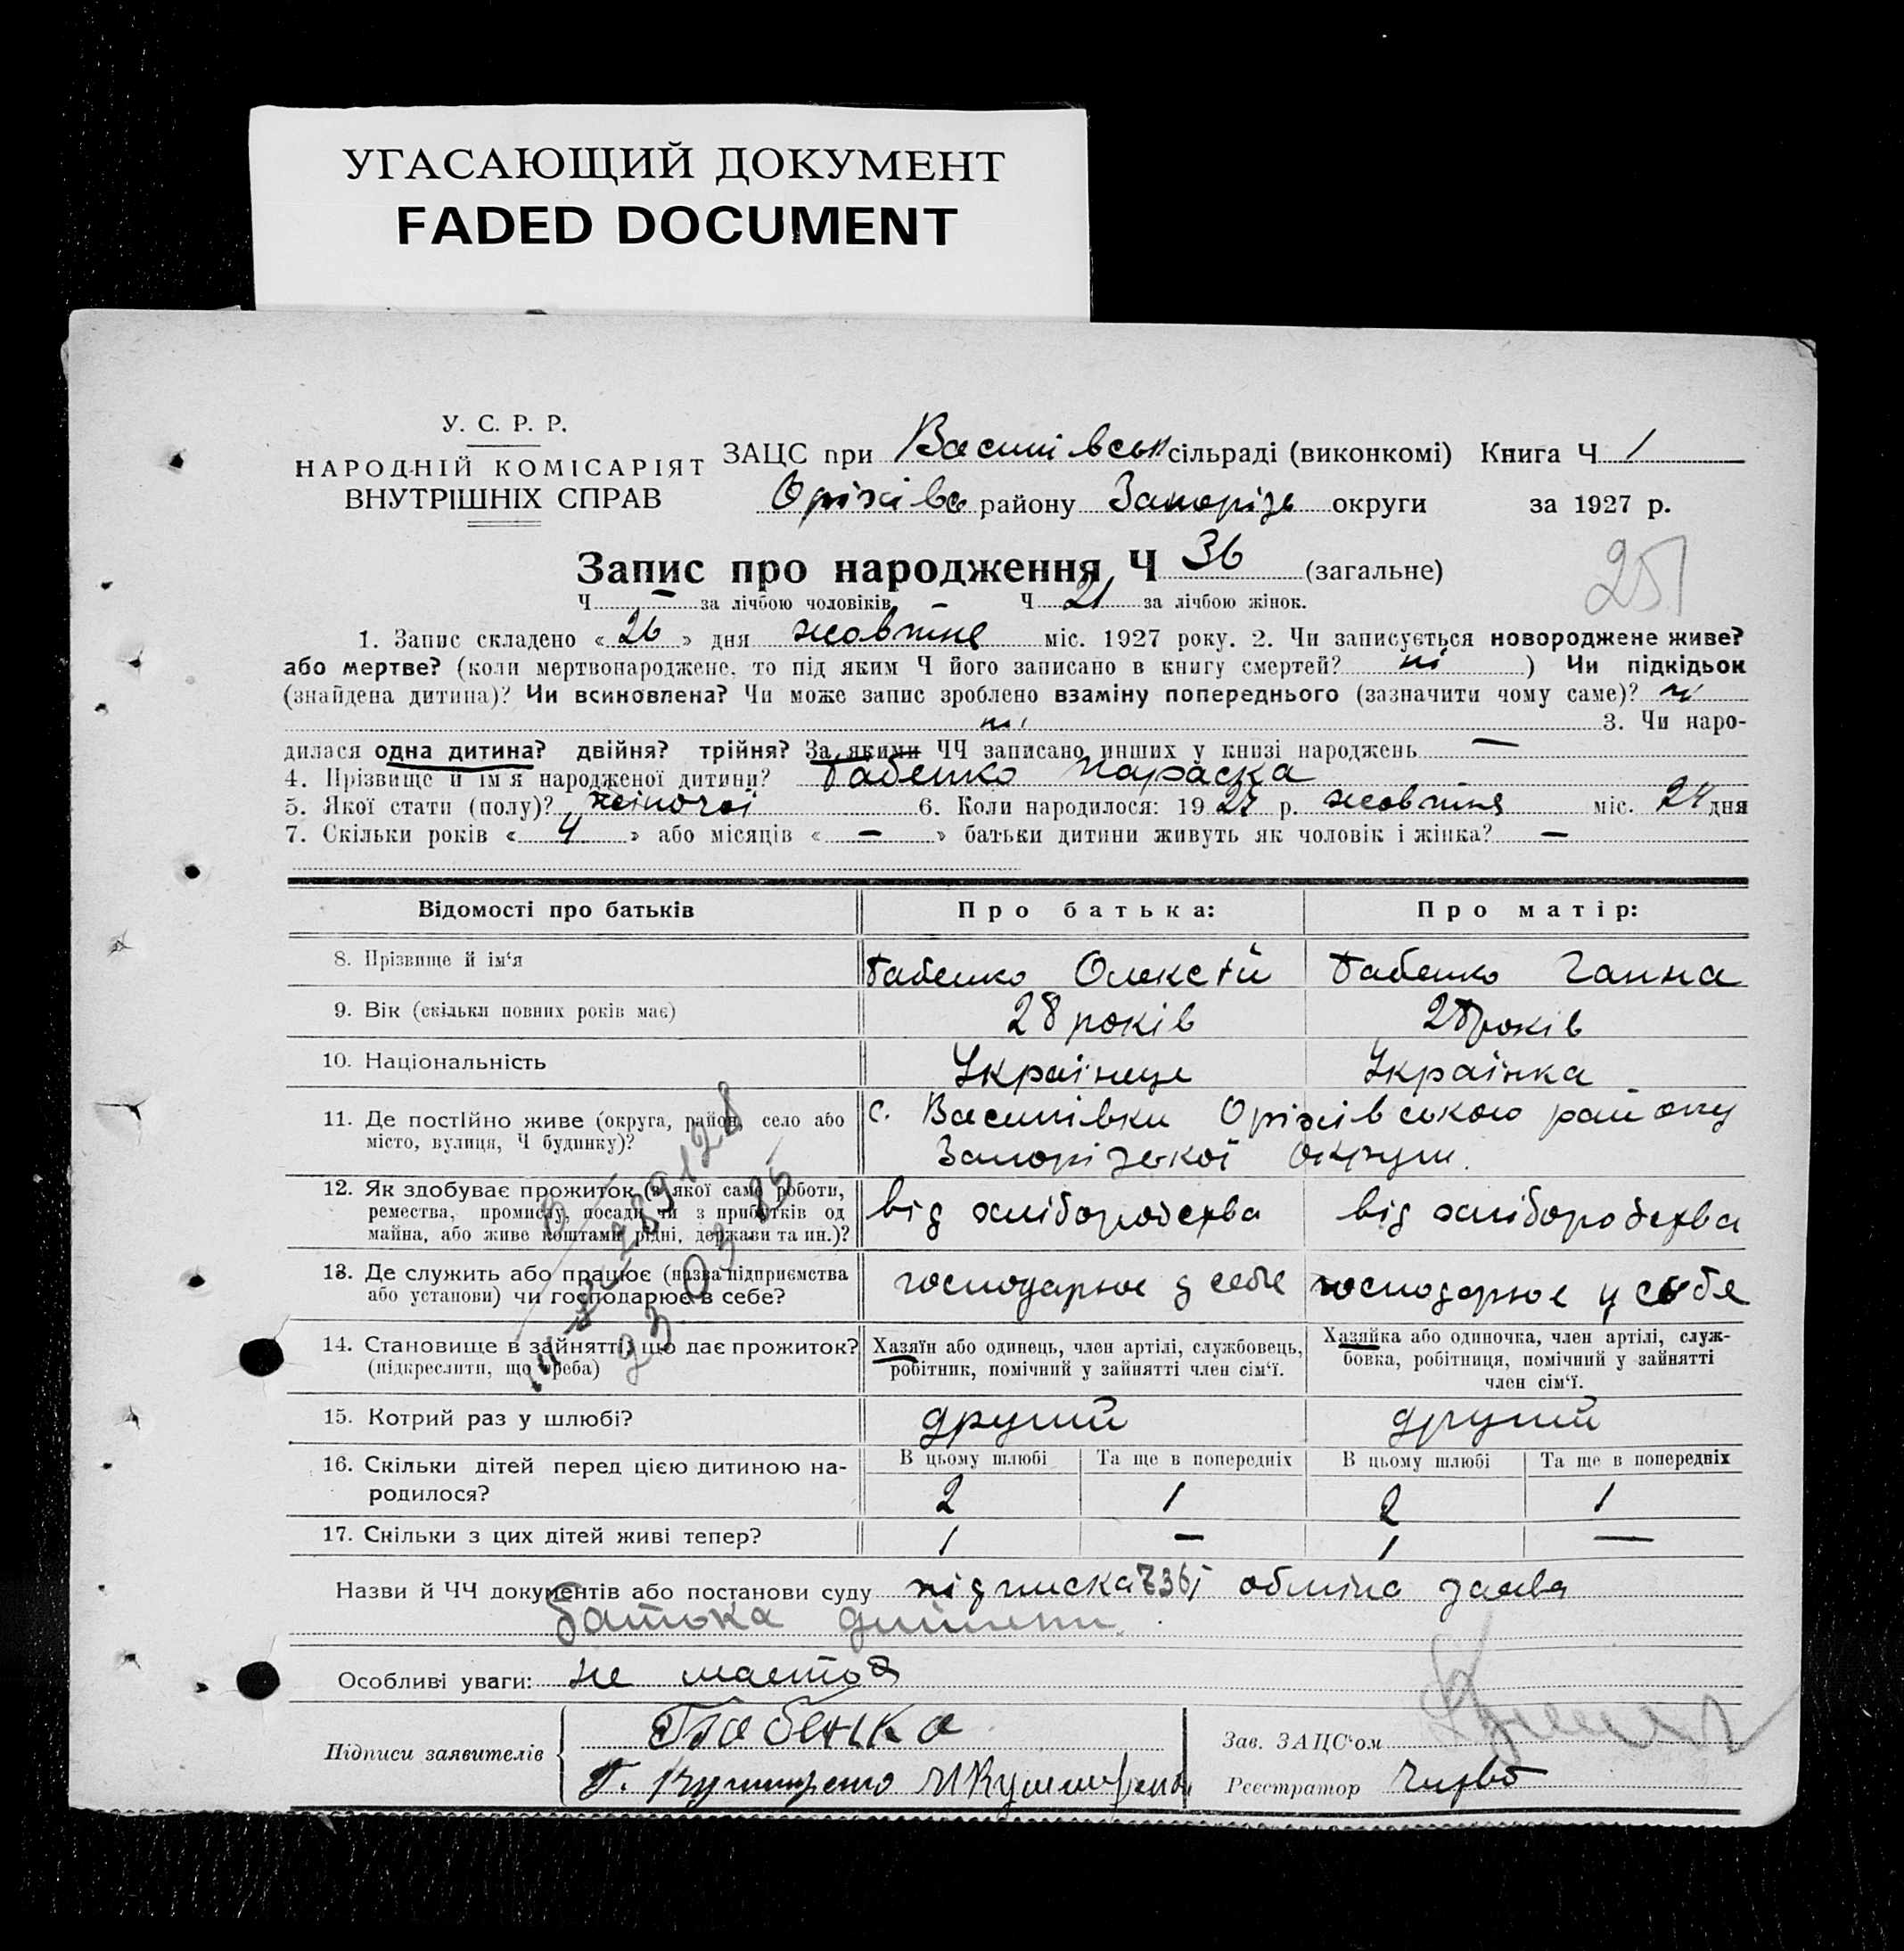 УГАСАЮЩИЙ ДОКУМЕНТ
FADED DOCUMENT
У. С. Р. Р.
НАРОДНІЙ КОМІСАРІЯТ
ВНУТРІШНІХ СПРАВ
ЗАЦС при Василівськ сільраді (виконкомі) Книга Ч 1
Оріхівс району Запорізь округи за 1927 р.
Запис про народження Ч 36 (загальне)
251
Ч — за лічбою чоловіків, — Ч 21 за лічбою жінок.
1. Запис складено «26» дня жовтня міс. 1927 року. 2. Чи записується новороджене живе?
або мертве? (коли мертвонароджене, то під яким Ч його записано в книгу смертей? ні ) Чи підкідьок
(знайдена дитина)? Чи всиновлена? Чи може запис зроблено взаміну попереднього (зазначити чому саме)? ні
ні 3. Чи наро-
дилася одна дитина? двійня? трійня? За якими ЧЧ записано инших у книзі народжень —
4. Прізвище й ім'я народженої дитини? Бабенко Параска
5. Якої стати (полу)? жіночої 6. Коли народилося: 1927 р. жовтня міс. 24 дня
7. Скільки років «4» або місяців «—» батьки дитини живуть як чоловік і жінка? —
Відомості про батьків Про батька: Про матір:
8. Прізвище й ім'я Бабенко Олексій Бабенко Ганна
9. Вік (скільки повних років має) 28 років 28 років
10. Національність Українець Українка
11. Де постійно живе (округа, район, село або с. Василівки Оріхівського району
місто, вулиця, Ч будинку)? Запорізької округи.
12. Як здобуває прожиток (з якої саме роботи,
ремества, промислу, посади чи з прибутків од від хліборобства від хліборобства
майна, або живе коштами рідні, держави та ин.)?
13. Де служить або працює (назва підприємства господарює у себе господарює у себе
або установи) чи господарює в себе?
14. Становище в зайнятті, що дає прожиток? Хазяїн або одинець, член артілі, службовець, Хазяйка або одиночка, член артілі, служ-
(підкреслити, що треба) робітник, помічний у зайнятті член сім'ї. бовка, робітниця, помічний у зайнятті
член сім'ї.
15. Котрий раз у шлюбі? другий другий
16. Скільки дітей перед цією дитиною на- В цьому шлюбі Та ще в попередніх В цьому шлюбі Та ще в попередніх
родилося? 2 1 2 1
17. Скільки з цих дітей живі тепер? 1 — 1 —
Назви й ЧЧ документів або постанови суду підписка заява
батька дитини.
Особливі уваги: не мається
Підписи заявителів Бабенко
Г. Кушниренко И Кушниренко
Зав. ЗАЦС'ом
Реєстратор